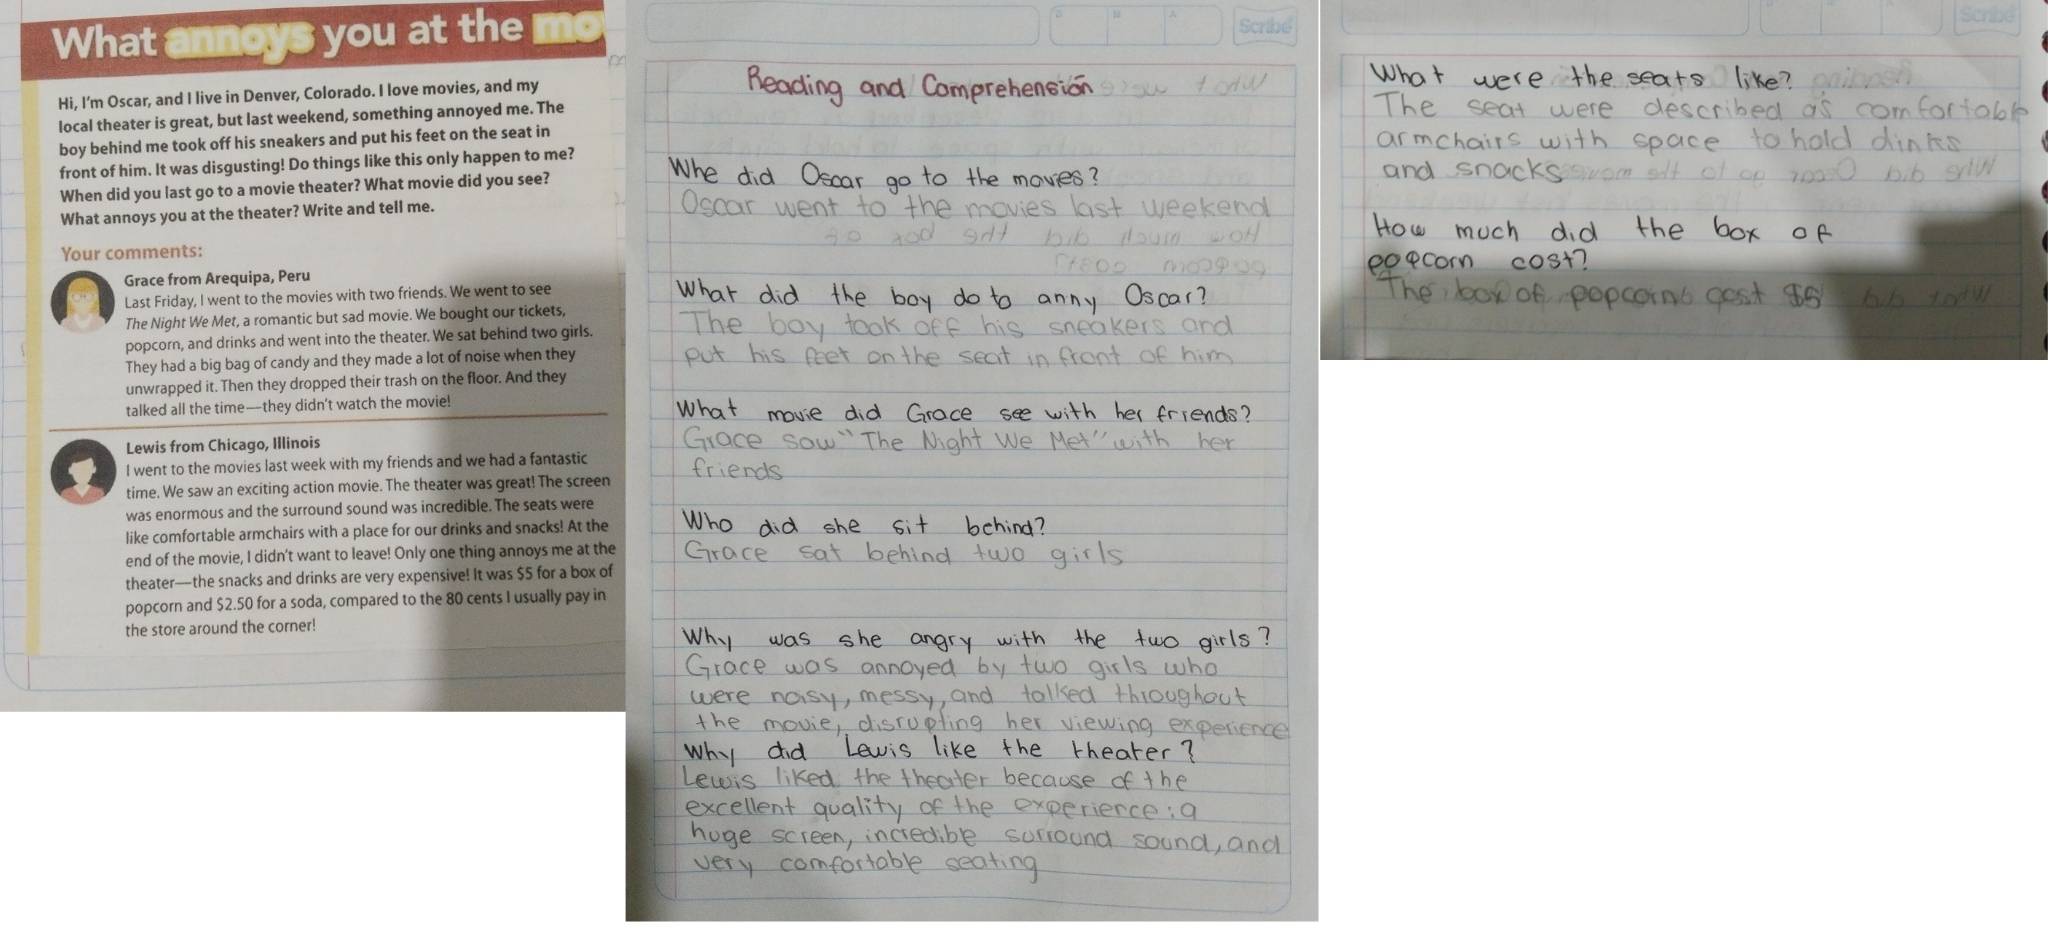 What annoys you at the mo
Hi, I'm Oscar, and I live in Denver, Colorado. I love movies, and my
local theater is great, but last weekend, something annoyed me. The
boy behind me took off his sneakers and put his feet on the seat in
front of him. It was disgusting! Do things like this only happen to me?
When did you last go to a movie theater? What movie did you see?
What annoys you at the theater? Write and tell me.
Your comments:
Grace from Arequipa, Peru
Last Friday, I went to the movies with two friends. We went to see
The Night We Met, a romantic but sad movie. We bought our tickets,
popcorn, and drinks and went into the theater. We sat behind two girls.
They had a big bag of candy and they made a lot of noise when they
unwrapped it. Then they dropped their trash on the floor. And they
talked all the time—they didn't watch the movie!
Lewis from Chicago, Illinois
I went to the movies last week with my friends and we had a fantastic
time. We saw an exciting action movie. The theater was great! The screen
was enormous and the surround sound was incredible. The seats were
like comfortable armchairs with a place for our drinks and snacks! At the
end of the movie, I didn't want to leave! Only one thing annoys me at the
theater—the snacks and drinks are very expensive! It was $5 for a box of
popcorn and $2.50 for a soda, compared to the 80 cents I usually pay in
the store around the corner!
D M A
Scribe
Reading and Comprehensión
Whe did Oscar go to the movies?
Oscar went to the movies last weekend
What did the boy do to anny Oscar?
The boy took off his sneakers and
put his feet on the seat in front of him
What movie did Grace see with her friends?
Grace saw "The Night We Met" with her
friends
Who did she sit behind?
Grace sat behind two girls
Why was she angry with the two girls?
Grace was annoyed by two girls who
were noisy, messy, and talked throughout
the movie, disrupting her viewing experience
Why did Lewis like the theater?
Lewis liked the theater because of the
excellent quality of the experience: a
huge screen, incredible surround sound, and
very comfortable seating
Scribe
What were the seats like?
The seat were described as comfortable
armchairs with space to hold dinks
and snacks
How much did the box of
popcorn cost?
The box of popcorn cost $5